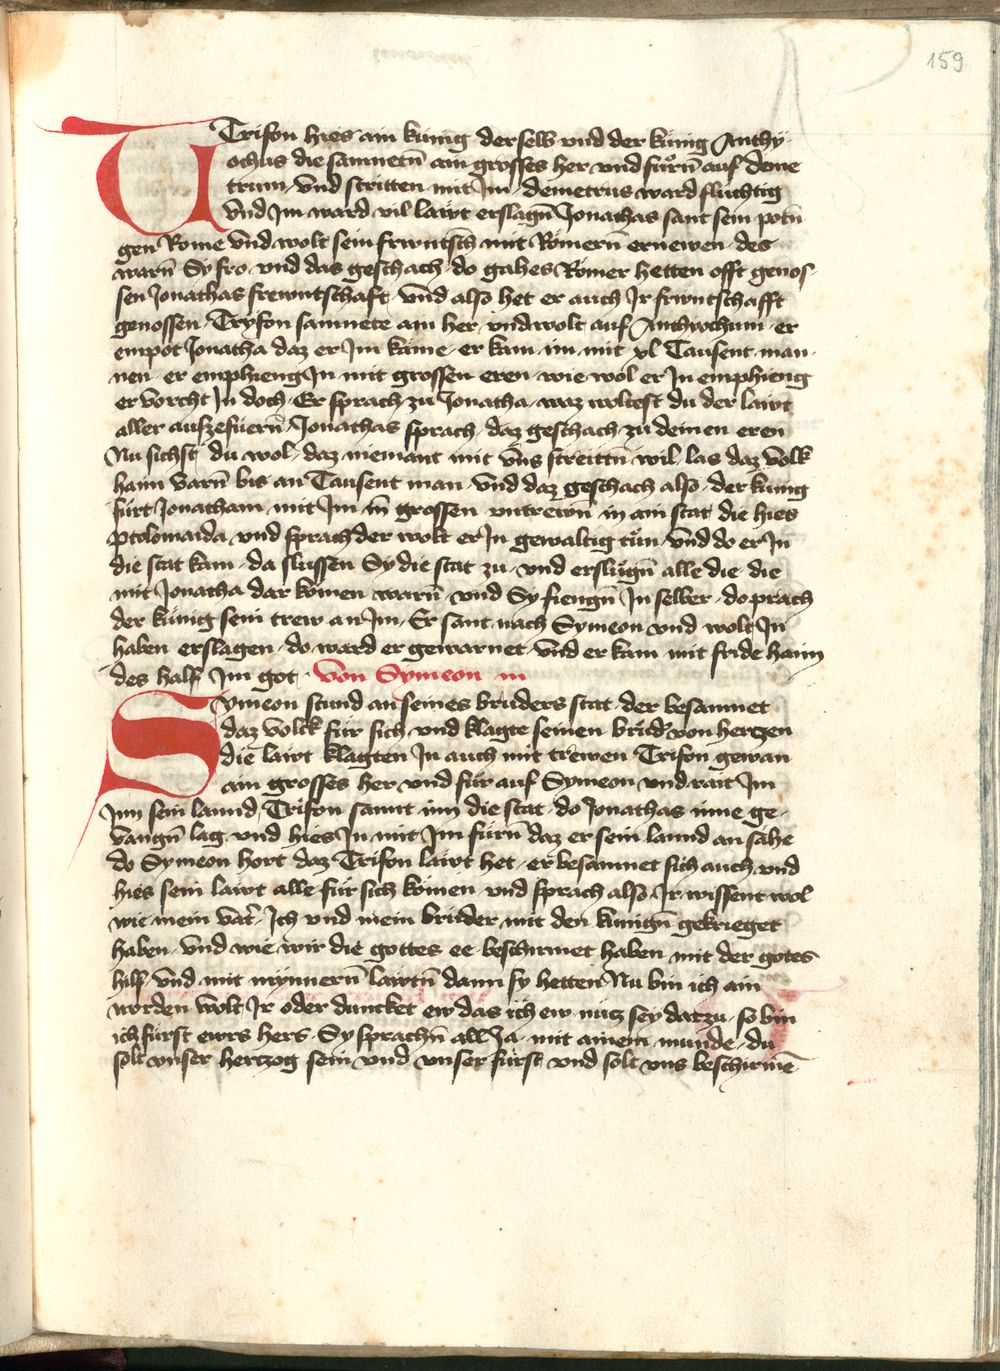 159
Trifon hies ain kunig derselb vnd der kunig Anthy
ochus die samnetn̄ ain grosses her vnd fuͦrn̄ auf deme
trium vnd stritten mit Jm demetrius ward fluchtig
vnd Jm ward vil lawt erslagn̄ Jonathas sant sein potn̄
gen Rome vnd wolt sein frewntsch mit Römern̄ ernewen des
warn̄ Sy fro vnd das geschach do gahes Römer hetten offt genos
sen Jonathas frewntschaft vnd also het er auch Jr frwntschafft
genossen Tryfon samnete ain her vnd wolt auf Anthyochum er
empot Jonatha daz er Jm käme er kam im mit xl Tausent man
nen er emphieng Jn mit grossen eren wie wol er Jn emphieng
er vorcht Jn doch Er sprach zu Jonatha waz woltest du der lawt
aller aufzefüern̄ Jonathas sprach daz geschach zu deinen eren
Nu sichst du wol daz niemant mit vns streittn̄ wil las daz volk
haim varn̄ bis an Tausent man vnd daz geschach also der kunig
fürt Jonatham mit Jm in grossen vntrewn̄ in ain stat die hies
ptolomaida vnd sprach der wolt er Jn gewaltig tuͦn vnd do er Jn
die stat kam da slussen Sy die stat zu vnd erslugn̄ alle die die
mit Jonatha dar kömen warn̄ vnd Sy fiengn̄ Jn selber do prach
der künig sein trew an Jm Er sant nach Symeon vnd wolt Jn
haben erslagen do ward er gewarnet vnd er kam mit fride haim
des half Jm got von Symeon m
Symeon stund an seines bruders stat der besamnet
daz volck für sich vnd klagte seinen brud' von hertzen
die lawt klagten Jn auch mit trewen Trifon gewan
ain grosses her vnd für auf Symeon vnd rait Jm
Jnn sein lannd Trifon samt inn die stat do Jonathas inne ge
vangn̄ lag vnd hies Jn mit Jm fürn̄ daz er sein lannd an sähe
do Symeon hort daz Trifon lawt het er besamnet sich auch vnd
hies sein lawt alle für sich kömen vnd sprach also Jr wissent wol
wie mein vat' Jch vnd mein brüder mit den kunign̄ gekrieget
haben vnd wie wir die gottes ee beschirmet haben mit der gotes
hilf vnd mit mynnern̄ lawtn̄ dann sy hetten Nu bin ich ain
worden wolt Jr oder duncket ew das ich ew nütz sey datzu so bin
ich fürst ewrs hers Sy sprachn̄ all Ja mit ainem munde du
solt vnser hertzog sein vnd vnser fürst vnd solt vns beschirmē